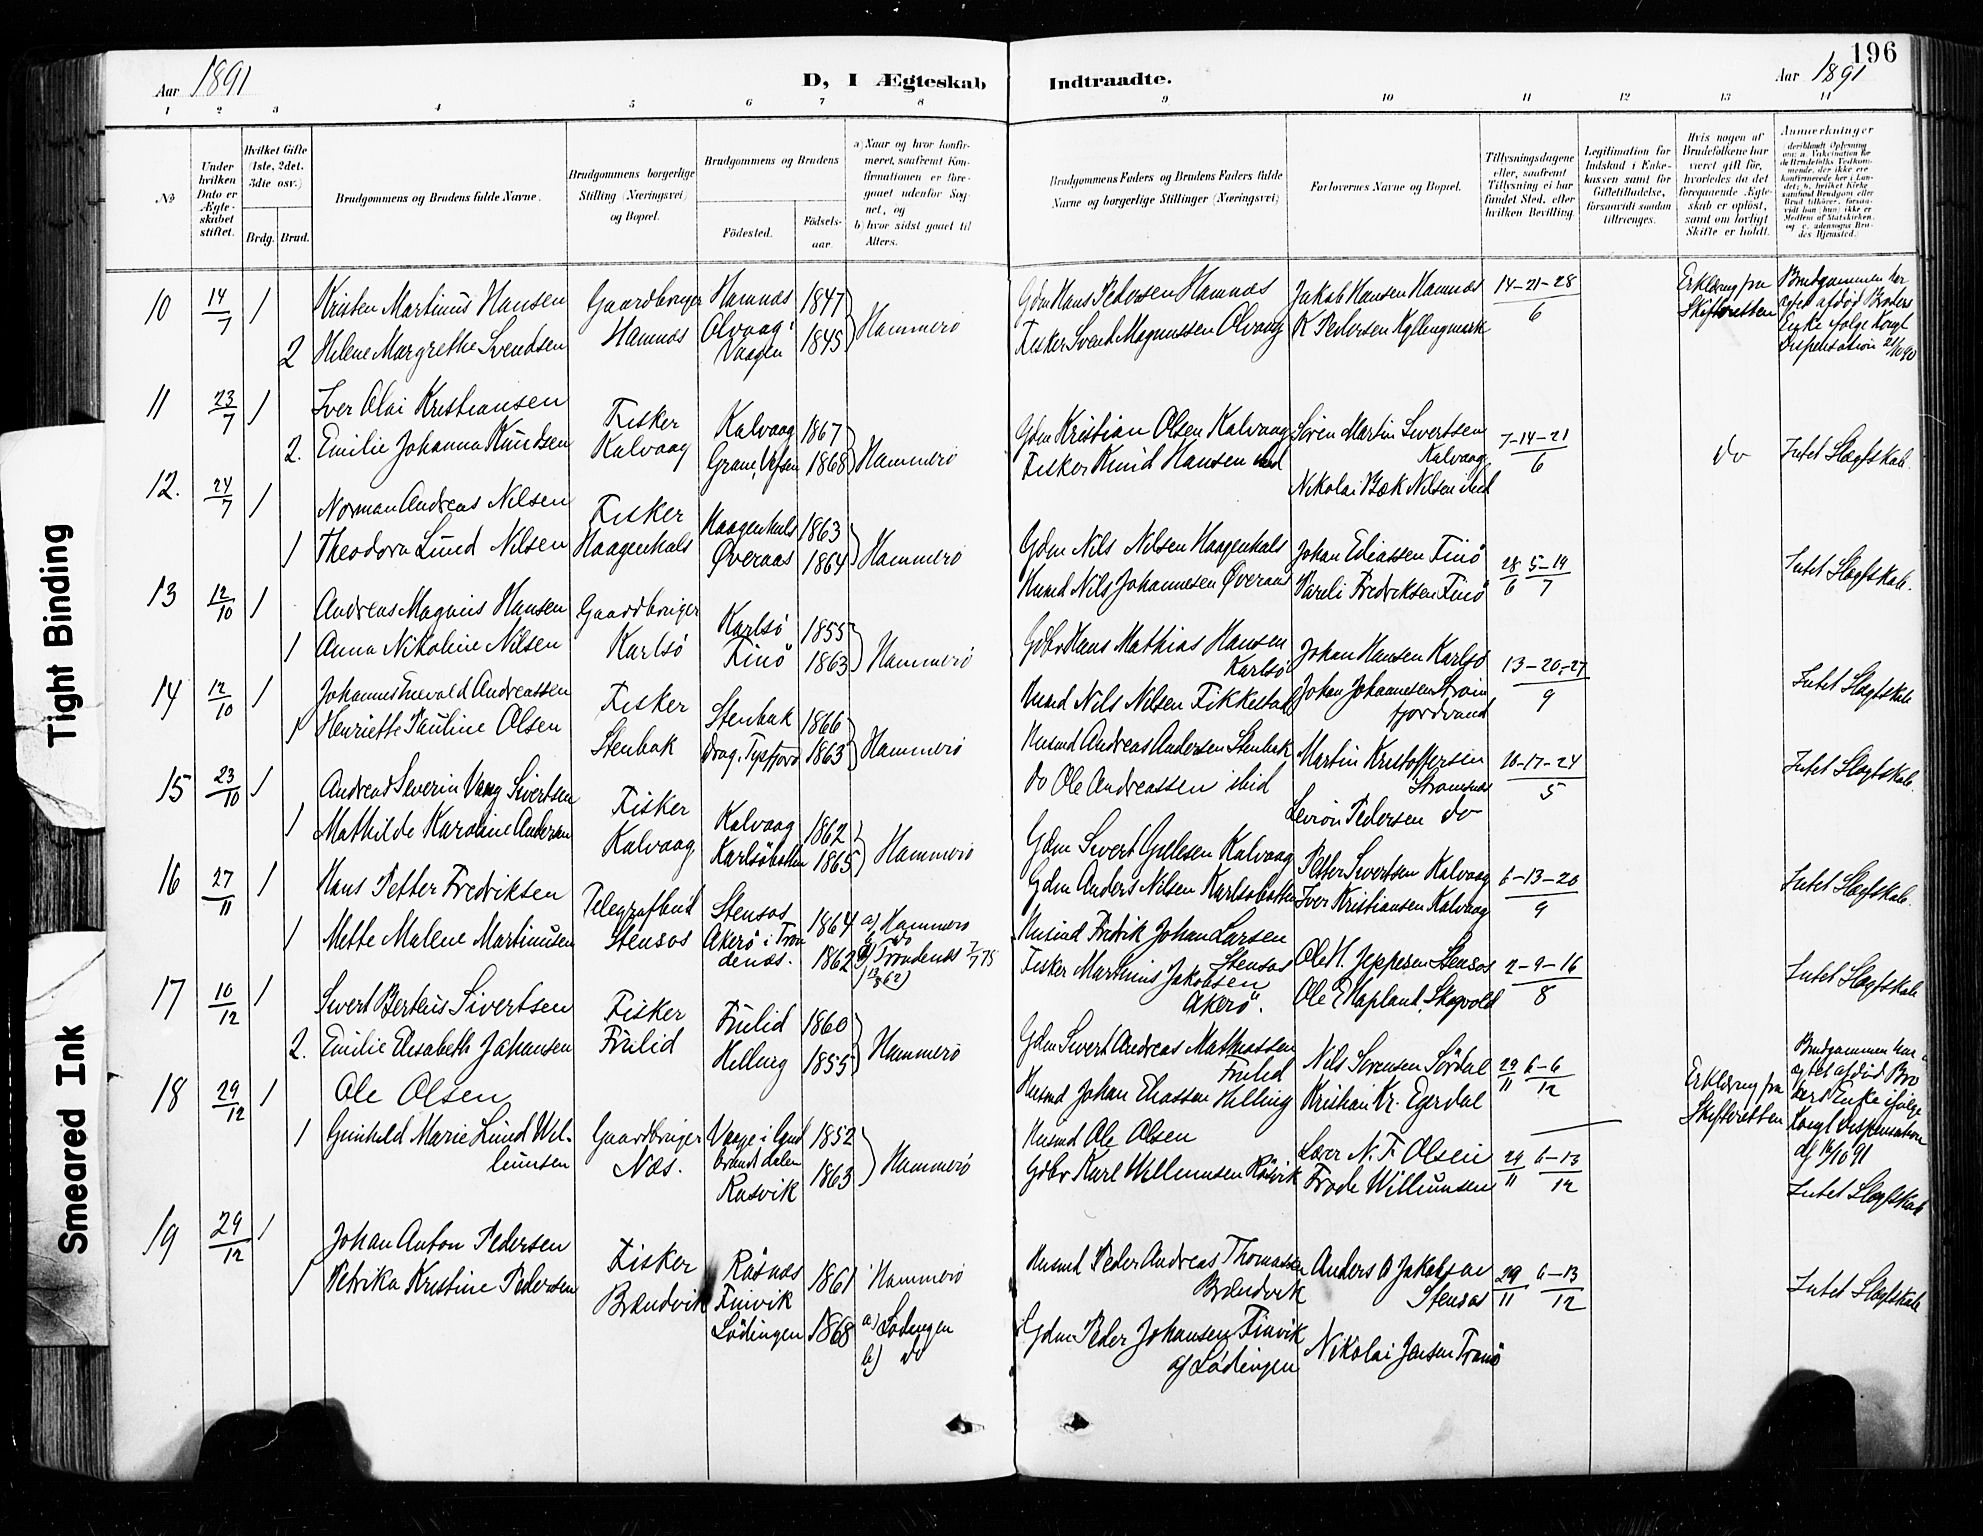 196
Aar 1891
D, I Ægteskab Indtraadte.
Aar 1891
1 2 3 4 5 6 7 8 9 10 11 12 13 14
№
Under hvilken Dato er Ægteskabet stiftet.
Hvilket Gifte (1ste, 2det, 3die osv.)
Brdg. Brud.
Brudgommens og Brudens fulde Navne.
Brudgommens borgerlige Stilling (Næringsvei) og Bopæl.
Brudgommens og Brudens
Födested. Födsels-aar.
a) Naar og hvor konfirmeret, saafremt Konfirmationen er foregaaet udenfor Sognet, og
b) hvor sidst gaaet til Alters.
Brudgommens Faders og Brudens Faders fulde Navne og borgerlige Stillinger (Næringsvei)
Forlovernes Navne og Bopæl.
Tillysningsdagene eller, saafremt Tillysning ei har fundet Sted, efter hvilken Bevilling.
Legitimation for Indskud i Enkekassen samt for Giftetilladelse, forsaavidt saadan tiltrænges.
Hvis nogen af Brudefolkene har været gift för, hvorledes da det foregaaende Ægteskab er oplöst, samt om lovligt Skifte er holdt.
Anmerkninger
10 14/7 1 Kristen Martinus Hansen Gaardbruger Hamnæs 1847 Hammerö Gdm Hans Pedersen Hamnæs Jakob Hansen Hamnæs 14-21-28/6 Erklæring fra Skifteretten Brudgommen har ægtet afdød Broders Enke ifølge Kongl Dispensation
2 Helene Margrethe Svendsen Hamnæs Olvaag i Vaagen 1845 Fisker Svend Magnussen Olvaag K Pedersen Kyllingmark
11 23/7 1 Iver Olai Kristiansen Fisker Kalvaag 1867 Hammerö Gdm Kristian Olsen Kalvaag Sören Martin Sivertsen Kalvaag 7-14-21/6 do Intet Slægtskab.
2. Emilie Johanna Knudsen Kalvaag Grane, Vefsen 1868 Fisker Knud Hansen ibid Nikolai Bæk Nilsen ibid
12. 24/7 1 Norman Andreas Nilsen Fisker Haagenhals 1863 Hammerö Gdm Nils Nilsen Haagenhals Johan Eliassen Finö 28/6 5-19/7 Intet Slægtskab.
1 Theodora Lund Nilsen Haagenhals Överaas 1864 Husmd Nils Johannesen Överaas Pareli Fredriksen Finö
13 12/10 1 Andreas Magnus Hansen Gaardbruger Karlsö 1855 Hammerö Gdbr Hans Mathias Hansen Karlsö Johan Hansen Karlsö 13-20-27/9 Intet Slægtskab
1 Anna Nikoline Nilsen Karlsö Finö 1863 Husmd Nils Nilsen Fikkestad Johan Johannesen
14 12/10 1 Johannes Enevold Andreassen Fisker Stenbak 1866 Hammerö Husmd Andreas Andersen Stenbak Martin Kristoffersen 10-17-24/5 Intet Slægtskab.
1 Henriette Pauline Olsen Stenbak Drag i Tysfjord 1863 do Ole Andreassen ibid Pedersen do
15 23/10 1 Andreas Severin Vang Sivertsen Fisker Kalvaag 1862 Hammerö Gdm Sivert Gullesen Kalvaag Petter Sivertsen Kalvaag 6-13-20/9 Intet Slægtskab.
1 Mathilde Karoline Andersen Kalvaag Karlsöbotten 1865 Gdm Anders Nilsen Karlsöbotten Iver Kristiansen Kalvaag
16 27/11 1 Hans Petter Fredriksen Telegrafbud Stensøs 1864 a) Hammerö b) do Husmd Fredrik Johan Larsen Stensøs Ole H. Jeppesen Stensøs 2-9-16/8 Intet Slægtskab
1 Mette Malene Martinusen Stensøs Akerö i Trondenæs. 1862 Trondenæs Fisker Martinus Jakobsen Akerö. Ole E Kapland, Skogvold
17 10/12 1 Sivert Berteus Sivertsen Fisker Frulid 1860 Hammerö Gdm Sivert Andreas Mathiassen Frulid Nils Sørensen Sørdal 29/11 6-6/12 Erklæring fra Skifteretten Brudgommen har ægtet afdød Broders Enke ifølge Kongl Dispensation af 14/10 91
2. Emilie Elisabeth Johansen Frulid Helling 1855 Husmd Johan Eliassen Helling Kristian Kr. Egerdal
18 29/12 1 Ole Olsen Gaardbruger Vaage i Gudbrandsdalen 1852 Hammerö Husmd Ole Olsen Lærer N. F. Olsen 29/11 6-13/12 Intet Slægtskab
1 Gunhild Marie Lund Willumsen Næs. Rösvik 1863 Gdbr Karl Willumsen Rösvik Frode Willumsen
19 29/12 1 Johan Anton Pedersen Fisker Rösnæs 1861 Hammerö Husmd Peder Andreas Thomassen Brændvik Anders A Jakobsen Stensøs 29/11 6-13/12 Intet Slægtskab
1 Petrika Kristine Pedersen Brændvik Finvik Lödingen 1868 a) Lödingen b) do Gdm Peder Johansen Finvik af Lödingen Nikolai Jensen Tranö
Tight Binding
Smeared Ink